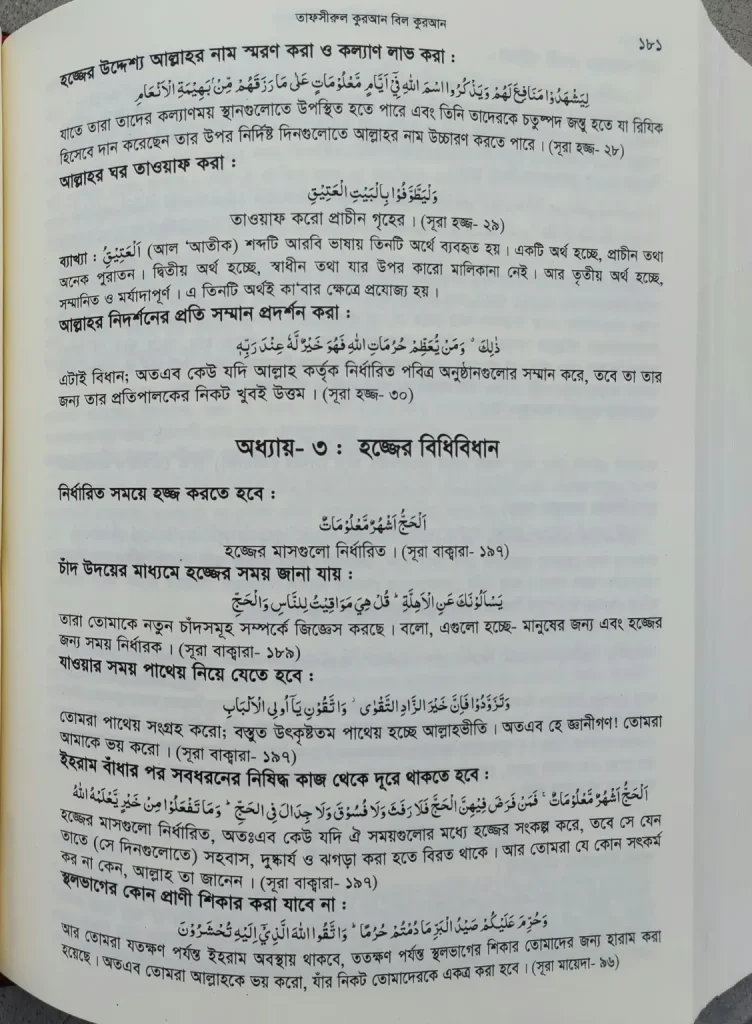 তাফসীরুল কুরআন বিল কুরআন
১৮১
হজ্জের উদ্দেশ্য আল্লাহর নাম স্মরণ করা ও কল্যাণ লাভ করা :
لِيَشْهَدُوْا مَنَافِعَ لَهُمْ وَيَذْكُرُوا اسْمَ اللهِ فِيْٓ اَيَّامٍ مَّعْلُوْمَاتٍ عَلٰى مَا رَزَقَهُمْ مِّنْ ۢ بَهِيْمَةِ الْاَنْعَامِ
যাতে তারা তাদের কল্যাণময় স্থানগুলোতে উপস্থিত হতে পারে এবং তিনি তাদেরকে চতুষ্পদ জন্তু হতে যা রিযিক
হিসেবে দান করেছেন তার উপর নির্দিষ্ট দিনগুলোতে আল্লাহর নাম উচ্চারণ করতে পারে। (সূরা হজ্জ- ২৮)
আল্লাহর ঘর তাওয়াফ করা :
وَلْيَطَّوَّفُوْا بِالْبَيْتِ الْعَتِيْقِ
তাওয়াফ করো প্রাচীন গৃহের। (সূরা হজ্জ- ২৯)
ব্যাখ্যা : اَلْعَتِيْقُ (আল ‘আতীক) শব্দটি আরবি ভাষায় তিনটি অর্থে ব্যবহৃত হয়। একটি অর্থ হচ্ছে, প্রাচীন তথা
অনেক পুরাতন। দ্বিতীয় অর্থ হচ্ছে, স্বাধীন তথা যার উপর কারো মালিকানা নেই। আর তৃতীয় অর্থ হচ্ছে,
সম্মানিত ও মর্যাদাপূর্ণ। এ তিনটি অর্থই কা‘বার ক্ষেত্রে প্রযোজ্য হয়।
আল্লাহর নিদর্শনের প্রতি সম্মান প্রদর্শন করা :
ذٰلِكَ ۗ وَمَنْ يُّعَظِّمْ حُرُمَاتِ اللهِ فَهُوَ خَيْرٌ لَّهٗ عِنْدَ رَبِّهٖ
এটাই বিধান; অতএব কেউ যদি আল্লাহ কর্তৃক নির্ধারিত পবিত্র অনুষ্ঠানগুলোর সম্মান করে, তবে তা তার
জন্য তার প্রতিপালকের নিকট খুবই উত্তম। (সূরা হজ্জ- ৩০)
অধ্যায়- ৩ : হজ্জের বিধিবিধান
নির্ধারিত সময়ে হজ্জ করতে হবে :
اَلْحَجُّ اَشْهُرٌ مَّعْلُوْمَاتٌ
হজ্জের মাসগুলো নির্ধারিত। (সূরা বাক্বারা- ১৯৭)
চাঁদ উদয়ের মাধ্যমে হজ্জের সময় জানা যায় :
يَسْاَلُوْنَكَ عَنِ الْاَهِلَّةِ ؕ قُلْ هِيَ مَوَاقِيْتُ لِلنَّاسِ وَالْحَجِّ
তারা তোমাকে নতুন চাঁদসমূহ সম্পর্কে জিজ্ঞেস করছে। বলো, এগুলো হচ্ছে- মানুষের জন্য এবং হজ্জের
জন্য সময় নির্ধারক। (সূরা বাক্বারা- ১৮৯)
যাওয়ার সময় পাথেয় নিয়ে যেতে হবে :
وَتَزَوَّدُوْا فَاِنَّ خَيْرَ الزَّادِ التَّقْوٰى ؗ وَاتَّقُوْنِ يَاۤ اُولِى الْاَلْبَابِ
তোমরা পাথেয় সংগ্রহ করো; বস্তুত উৎকৃষ্টতম পাথেয় হচ্ছে আল্লাহভীতি। অতএব হে জ্ঞানীগণ! তোমরা
আমাকে ভয় করো। (সূরা বাক্বারা- ১৯৭)
ইহরাম বাঁধার পর সবধরনের নিষিদ্ধ কাজ থেকে দূরে থাকতে হবে :
اَلْحَجُّ اَشْهُرٌ مَّعْلُوْمَاتٌ ۚ فَمَنْ فَرَضَ فِيْهِنَّ الْحَجَّ فَلَا رَفَثَ وَلَا فُسُوْقَ وَلَا جِدَالَ فِى الْحَجِّ ؕ وَمَا تَفْعَلُوْا مِنْ خَيْرٍ يَّعْلَمْهُ اللهُ
হজ্জের মাসগুলো নির্ধারিত, অতঃএব কেউ যদি ঐ সময়গুলোর মধ্যে হজ্জের সংকল্প করে, তবে সে যেন
তাতে (সে দিনগুলোতে) সহবাস, দুষ্কার্য ও ঝগড়া করা হতে বিরত থাকে। আর তোমরা যে কোন সৎকর্ম
কর না কেন, আল্লাহ তা জানেন। (সূরা বাক্বারা- ১৯৭)
স্থলভাগের কোন প্রাণী শিকার করা যাবে না :
وَحُرِّمَ عَلَيْكُمْ صَيْدُ الْبَرِّ مَا دُمْتُمْ حُرُمًا ؕ وَاتَّقُوا اللهَ الَّذِيْۤ اِلَيْهِ تُحْشَرُوْنَ
আর তোমরা যতক্ষণ পর্যন্ত ইহরাম অবস্থায় থাকবে, ততক্ষণ পর্যন্ত স্থলভাগের শিকার তোমাদের জন্য হারাম করা
হয়েছে। অতএব তোমরা আল্লাহকে ভয় করো, যাঁর নিকট তোমাদেরকে একত্র করা হবে। (সূরা মায়েদা- ৯৬)